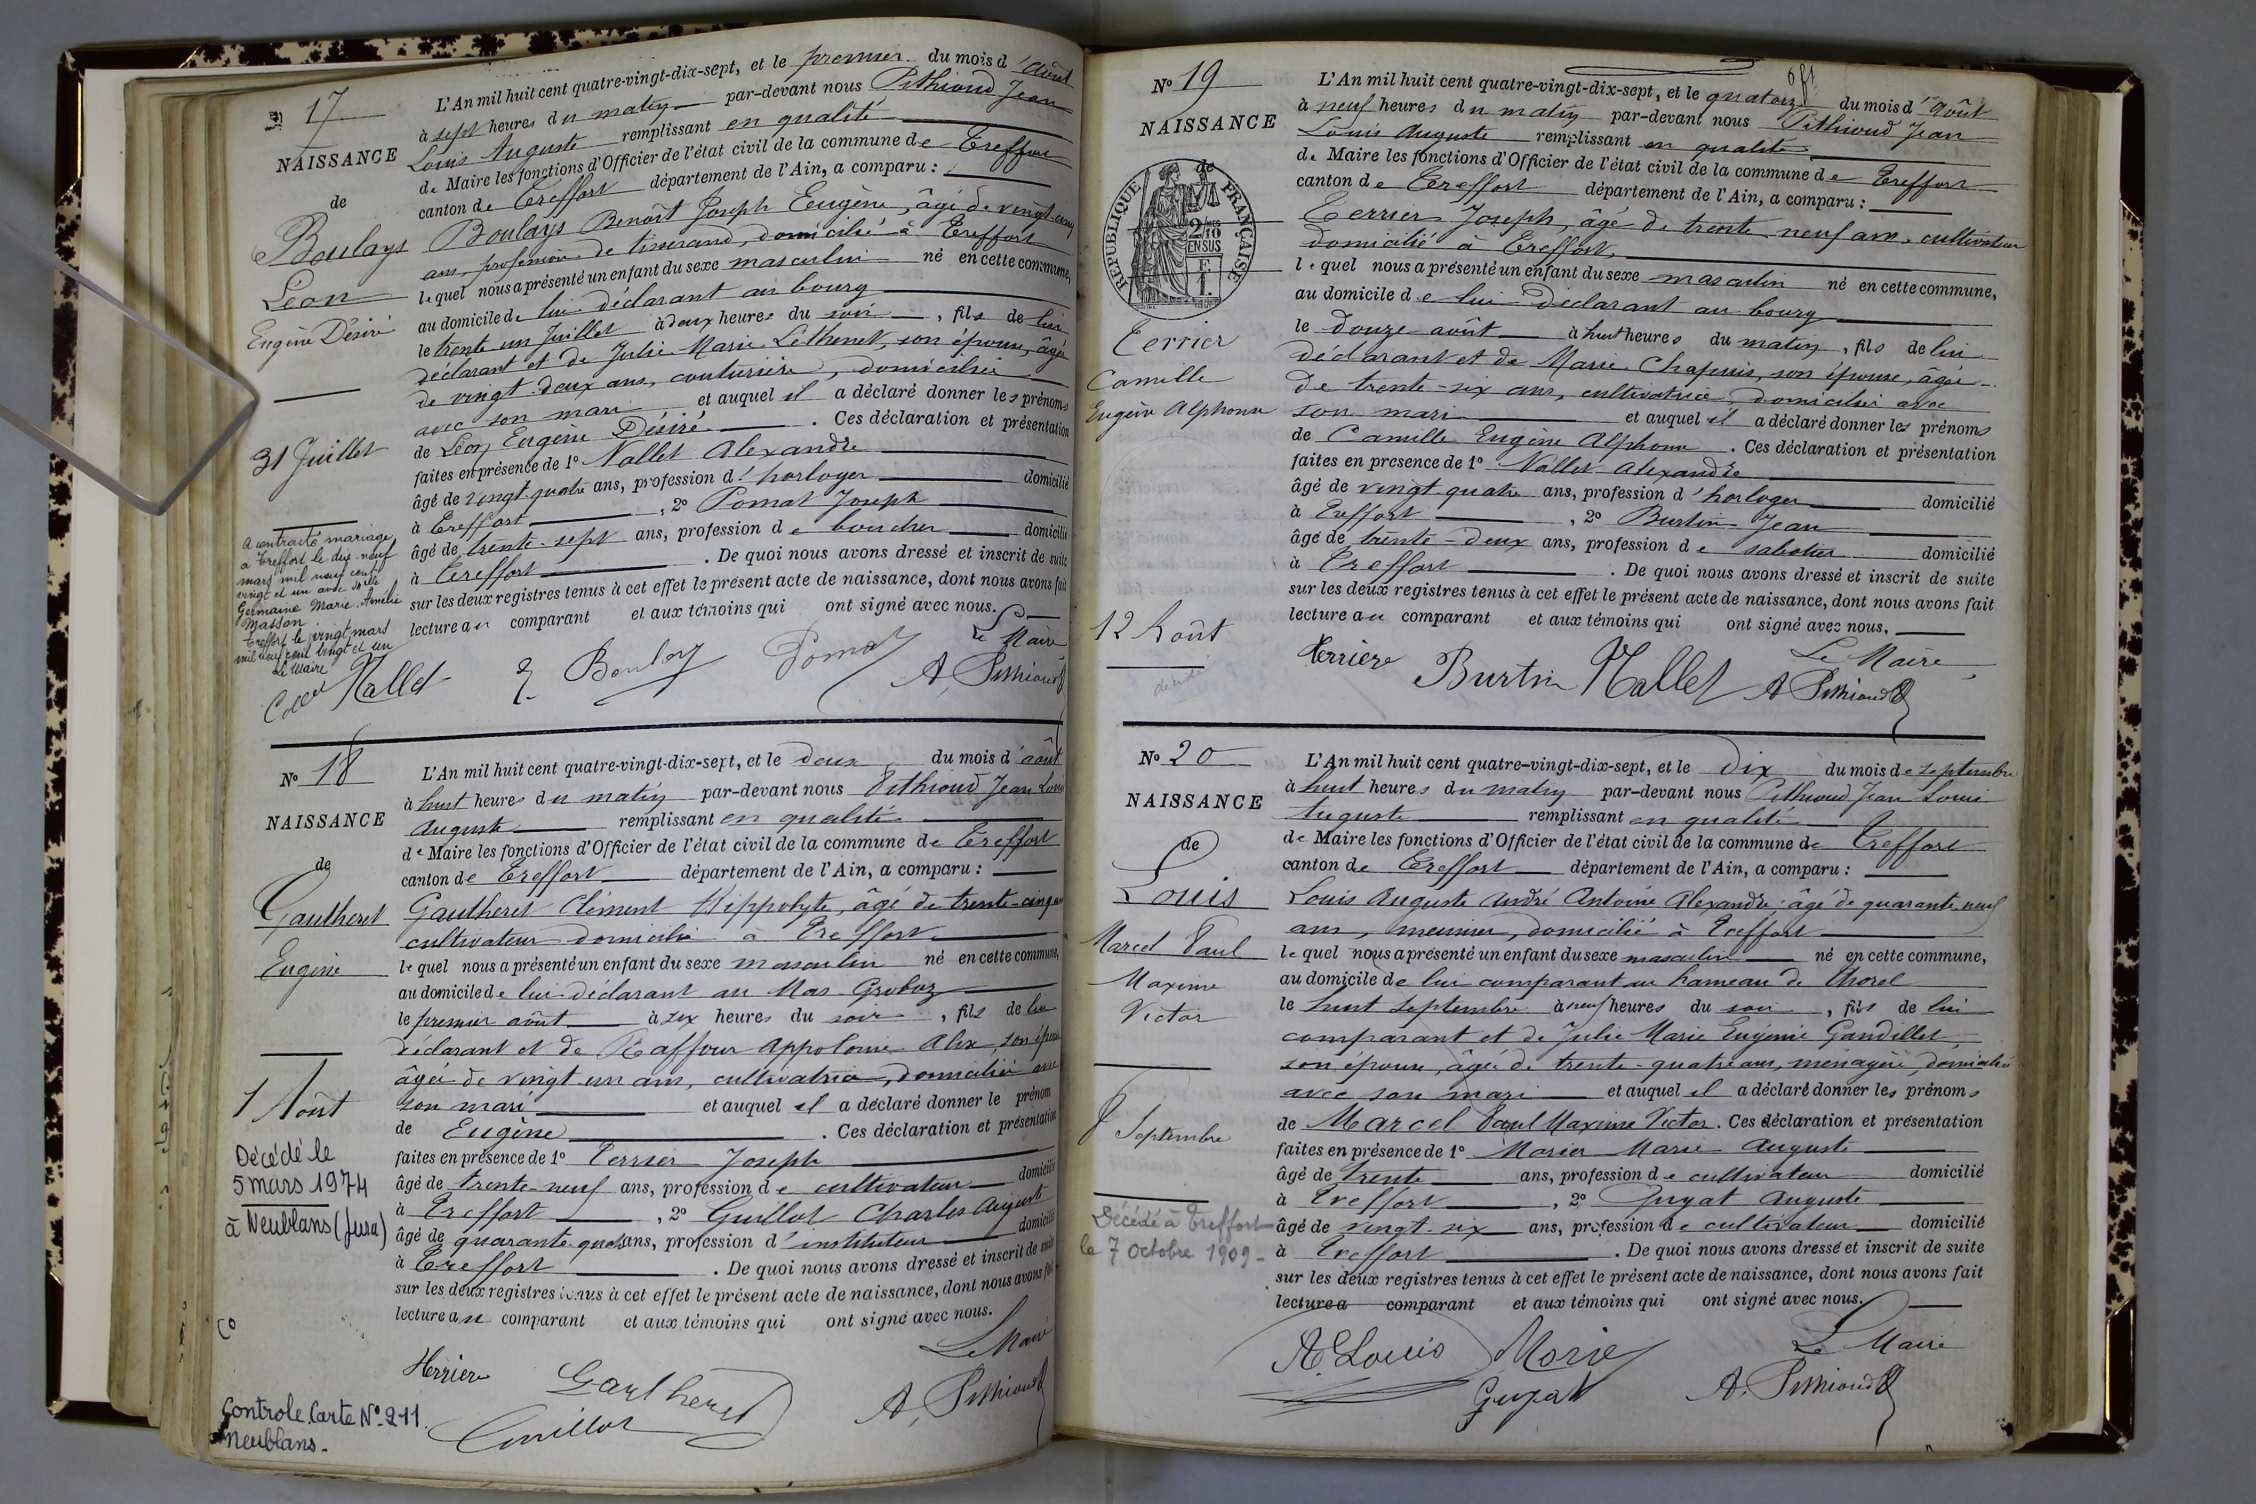 17
NAISSANCE
de
Boulays
Léon
Eugène Désiré
31 Juillet
A contracté mariage
à Treffort le dix-neuf
mars mil neuf cent
vingt et un avec Melle
Germaine Marie Amélie
Masson
Treffort le vingt mars
mil neuf cent vingt et un
Le Maire
L'An mil huit cent quatre-vingt-dix-sept, et le premier du mois d'août
à sept heures du matin par-devant nous Pithioud Jean
Louis Auguste remplissant en qualité
de Maire les fonctions d'Officier de l'état civil de la commune de Treffort
canton de Treffort département de l'Ain, a comparu :
Boulays Benoît Joseph Eugène, âgé de vingt-cinq
ans, profession de tisserand, domicilié à Treffort
lequel nous a présenté un enfant du sexe masculin né en cette commune,
au domicile de lui déclarant au bourg
le trente un Juillet à deux heures du soir, fils de lui
déclarant et de Julie Marie Léthenet, son épouse, âgée
de vingt-deux ans, couturière, domiciliée
avec son mari et auquel il a déclaré donner les prénoms
de Léon Eugène Désiré. Ces déclaration et présentation
faites en présence de 1° Nallet Alexandre
âgé de vingt-quatre ans, profession d'horloger domicilié
à Treffort, 2° Pomat Joseph
âgé de trente-sept ans, profession de boucher domicilié
à Treffort. De quoi nous avons dressé et inscrit de suite
sur les deux registres tenus à cet effet le présent acte de naissance, dont nous avons fait
lecture au comparant et aux témoins qui ont signé avec nous.
Le Maire
Nallet Boulay Pomat A. Pithioud
No 18
NAISSANCE
de
Gautheret
Eugène
1 Août
Décédé le
5 mars 1974
à Neublans (Jura)
Controle Carte No 211
Neublans.
L'An mil huit cent quatre-vingt-dix-sept, et le deux du mois d'août
à huit heures du matin par-devant nous Pithioud Jean Louis
Auguste remplissant en qualité
de Maire les fonctions d'Officier de l'état civil de la commune de Treffort
canton de Treffort département de l'Ain, a comparu :
Gautheret Clément Hippolyte, âgé de trente-cinq ans
cultivateur domicilié à Treffort
lequel nous a présenté un enfant du sexe masculin né en cette commune,
au domicile de lui déclarant au Mas Groboz
le premier août à six heures du soir, fils de lui
déclarant et de Raffour Appolonie Alix son épouse
âgée de vingt un ans, cultivatrice, domiciliée avec
son mari et auquel il a déclaré donner le prénom
de Eugène. Ces déclaration et présentation
faites en présence de 1° Terrier Joseph
âgé de trente-neuf ans, profession de cultivateur domicilié
à Treffort, 2° Guillot Charles Auguste
âgé de quarante-quatre ans, profession d'instituteur domicilié
à Treffort. De quoi nous avons dressé et inscrit de suite
sur les deux registres tenus à cet effet le présent acte de naissance, dont nous avons fait
lecture au comparant et aux témoins qui ont signé avec nous.
Le Maire
Terrier Gautheret A. Pithioud
Guillot
No 19
NAISSANCE
de
RÉPUBLIQUE FRANÇAISE
2/10
EN SUS
Terrier
Camille
Eugène Alphonse
12 Août
L'An mil huit cent quatre-vingt-dix-sept, et le quatorze du mois d'août
à neuf heures du matin par-devant nous Pithioud Jean
Louis Auguste remplissant en qualité
de Maire les fonctions d'Officier de l'état civil de la commune de Treffort
canton de Treffort département de l'Ain, a comparu :
Terrier Joseph, âgé de trente neuf ans, cultivateur
domicilié à Treffort,
lequel nous a présenté un enfant du sexe masculin né en cette commune,
au domicile de lui déclarant au bourg
le douze août à huit heures du matin, fils de lui
déclarant et de Marie Chapuis, son épouse, âgée
de trente-six ans, cultivatrice, domiciliée avec
son mari et auquel il a déclaré donner les prénoms
de Camille Eugène Alphonse. Ces déclaration et présentation
faites en présence de 1° Nallet Alexandre
âgé de vingt-quatre ans, profession d'horloger domicilié
à Treffort, 2° Burtin Jean
âgé de trente-deux ans, profession de sabotier domicilié
à Treffort. De quoi nous avons dressé et inscrit de suite
sur les deux registres tenus à cet effet le présent acte de naissance, dont nous avons fait
lecture au comparant et aux témoins qui ont signé avec nous.
Le Maire
Terrier Burtin Nallet A Pithioud
No 20
NAISSANCE
de
Louis
Marcel Paul
Maxime
Victor
8 Septembre
Décédé à Treffort
le 7 octobre 1909
L'An mil huit cent quatre-vingt-dix-sept, et le dix du mois de septembre
à huit heures du matin par-devant nous Pithioud Jean Louis
Auguste remplissant en qualité
de Maire les fonctions d'Officier de l'état civil de la commune de Treffort
canton de Treffort département de l'Ain, a comparu :
Louis Auguste André Antoine Alexandre, âgé de quarante-neuf
ans, meunier, domicilié à Treffort
lequel nous a présenté un enfant du sexe masculin né en cette commune,
au domicile de lui comparant au hameau de Thorel
le huit septembre à neuf heures du soir, fils de lui
comparant et de Julie Marie Eugénie Gandillet,
son épouse, âgée de trente-quatre ans, ménagère, domiciliée
avec son mari et auquel il a déclaré donner les prénoms
de Marcel Paul Maxime Victor. Ces déclaration et présentation
faites en présence de 1° Morier Marie Auguste
âgé de trente ans, profession de cultivateur domicilié
à Treffort, 2° Guyat Auguste
âgé de vingt-six ans, profession de cultivateur domicilié
à Treffort. De quoi nous avons dressé et inscrit de suite
sur les deux registres tenus à cet effet le présent acte de naissance, dont nous avons fait
lecture a comparant et aux témoins qui ont signé avec nous.
Le Maire
A. Louis Morie A. Pithioud
Guyat